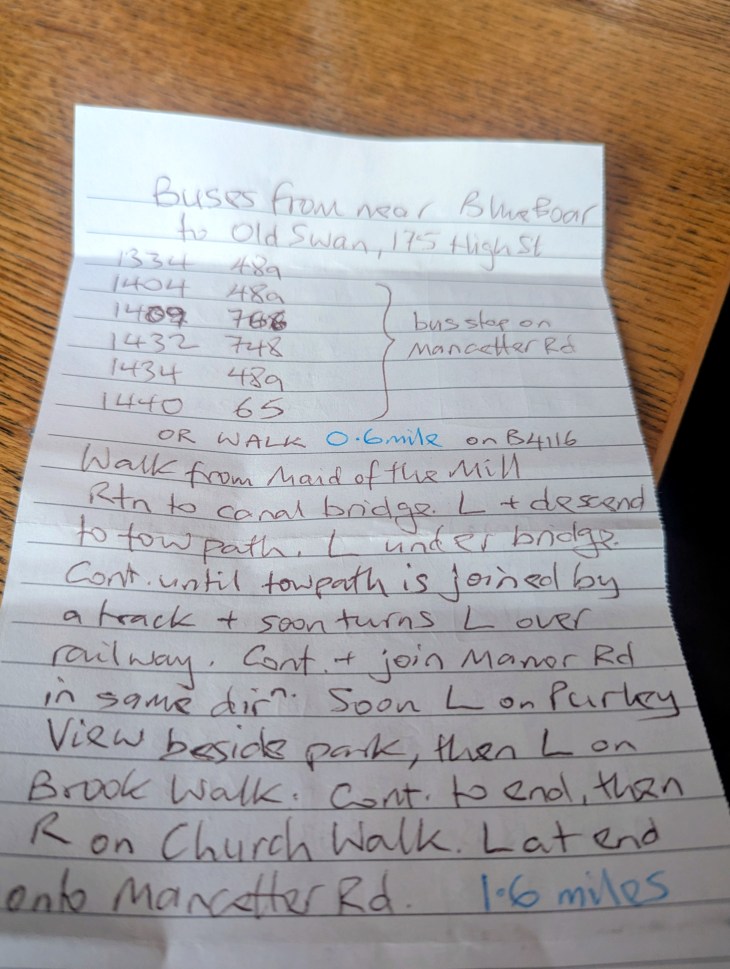 Buses from near Blue Boar
to Old Swan, 175 High St
1334 48a
1404 48a
1409 766
1432 748
1434 48a
1440 65
bus stop on
Mancetter Rd
OR WALK 0.6 mile on B4116
Walk from Maid of the Mill
Rtn to canal bridge. L + descend
to towpath. L under bridge.
Cont. until towpath is joined by
a track + soon turns L over
railway. Cont. + join Manor Rd
in same dirn. Soon L on Purley
View beside park, then L on
Brook Walk. Cont. to end, then
R on Church Walk. L at end
onto Mancetter Rd. 1.6 miles